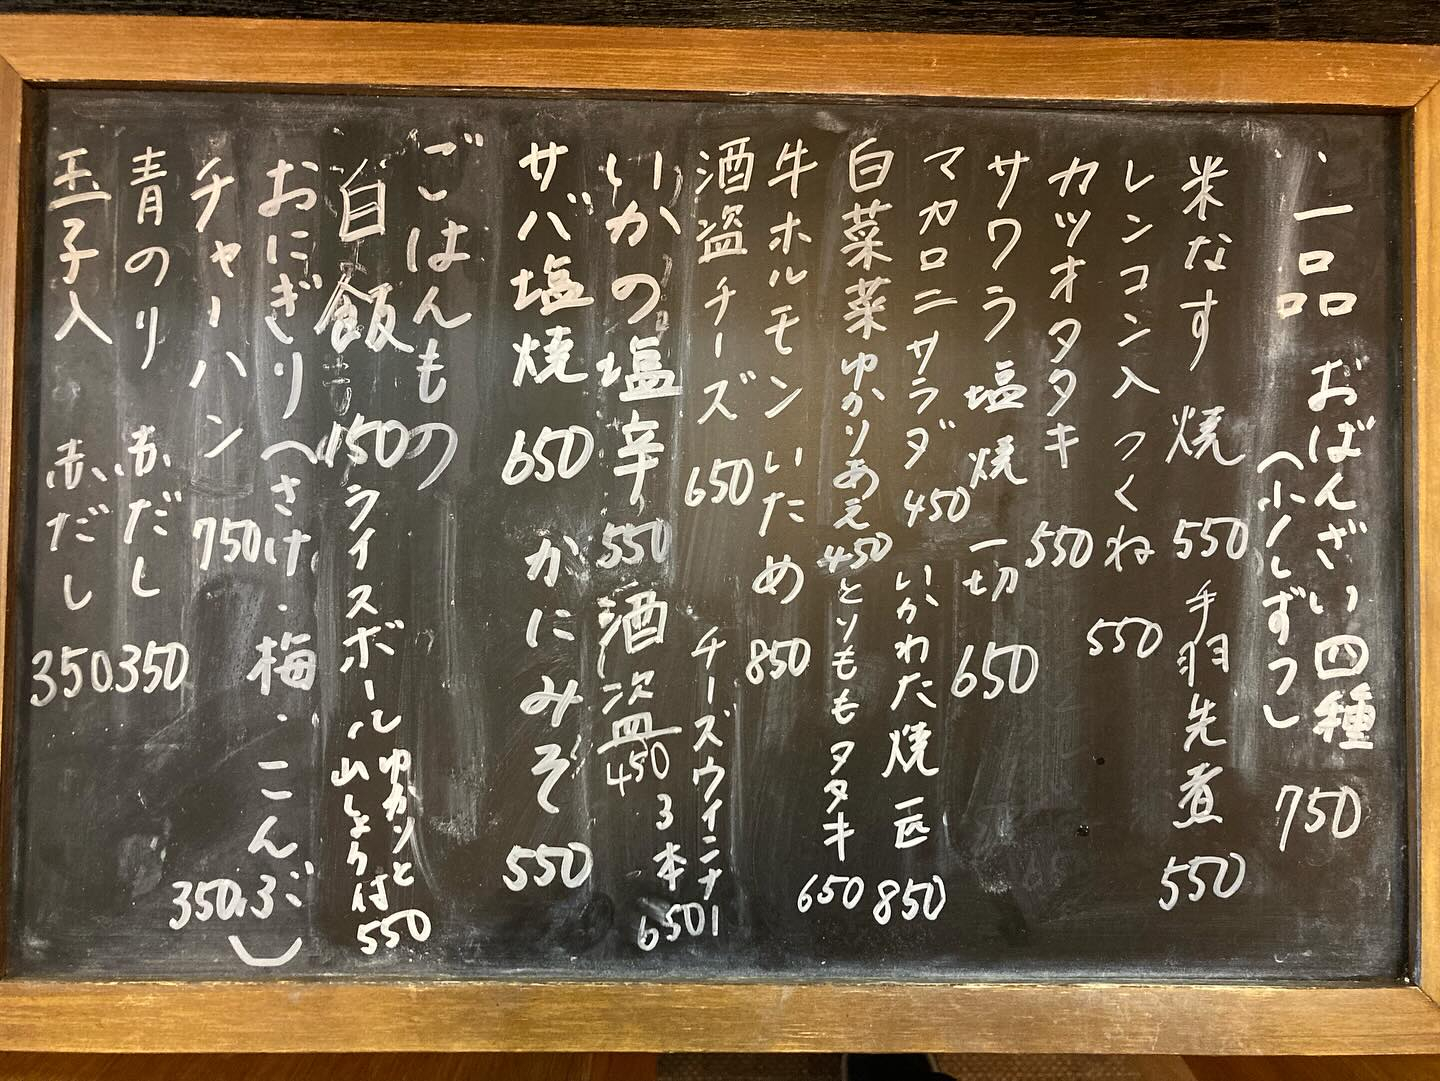 一品 おばんざい四種 750
(少しずつ)
米なす 焼 550 手羽先煮 550
レンコン入つくね 550
カツオタタキ 550
サワラ 塩焼 一切 650
マカロニサラダ 450 いかわた焼 一匹 850
白菜菜 ゆかりあえ 450 とりももタタキ 650
牛ホルモンいため 850
酒盗チーズ 650 チーズウインナー
3本 650
いかの塩辛 550 酒盗 450
サバ塩焼 650 かにみそ 550
ごはんもの
白飯 150 ライスボール ゆかりと
山しょう付 550
おにぎり(さけ・梅・こんぶ) 350
チャーハン 750
青のり 赤だし 350
玉子入 赤だし 350